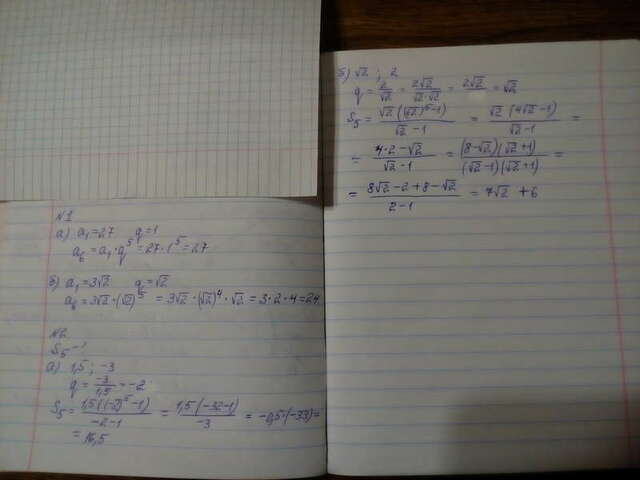 N1
а) a₁=27 q=1
a₆=a₁·q⁵=27·1⁵=27
б) a₁=3√2 q=√2
a₆=3√2·(√2)⁵=3√2·(√2)⁴·√2=3·2·4=24
N2
S₅-?
а) 1,5; -3
q=-3/1,5=-2
S₅=1,5((-2)⁵-1)/-2-1=1,5(-32-1)/-3=-0,5·(-33)=
=16,5
б) √2; 2
q=2/√2=2√2/√2·√2=2√2/=√2
S₅=√2((√2)⁵-1)/√2-1=√2(4√2-1)/√2-1=
=4·2-√2/√2-1=(8-√2)(√2+1)/(√2-1)(√2+1)=
=8√2-2+8-√2/2-1=7√2+6